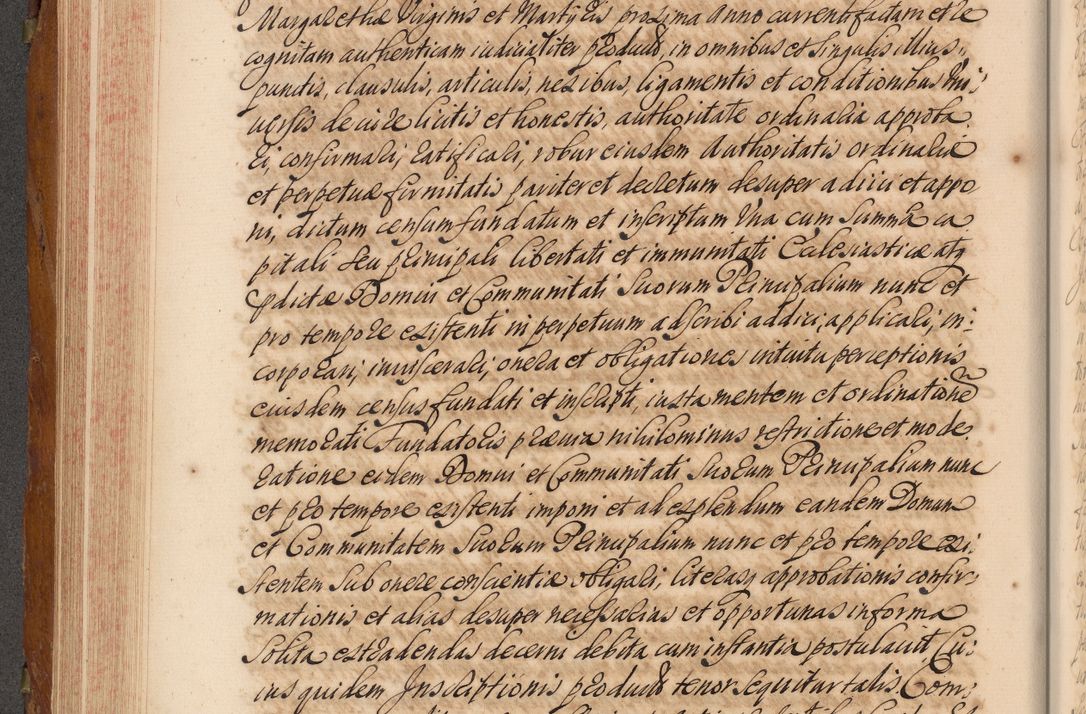 Margarethæ Virginis et Martyris proxima Anno currenti factam et re
cognitam authenticam iudicialiter produxit, in omnibus et singulis illius
punctis, clausulis, articulis, nexibus, ligamentis et conditionibus Uni-
versis de iure licitis et honestis, authoritate ordinaria approba
ri, confirmari, ratificari, robur eiusdem Authoritatis ordinariæ
et perpetuæ firmitatis pariter et decretum desuper adiici et appo
ni, dictum censum fundatum et inscriptum Una cum Summa ca
pitali seu principali libertati et immunitati Ecclesiasticæ atq
prædictæ Domui et Communitati Suorum Principalium nunc et
pro tempore existenti in perpetuum adscribi addici, applicari, in-
corporari, inviscerari, onera et obligationes intuitu perceptionis
eiusdem census fundati et inscripti, iuxta mentem et ordinationem
memorati Fundatoris prævia nihilominus restrictione et mode
ratione eidem Domui et Communitati Suorum Principalium nunc
et pro tempore existenti imponi et ad explendum eandem Domum
et Communitatem Suorum Principalium nunc et pro tempore exi-
stentem sub onere conscientiæ obligari, literasq approbationis confir-
mationis et alias desuper necessarias et opportunas in forma
solita extradendas decerni debita cum instantia postulavit, Cu-
ius quidem Inscriptionis producta tenor sequitur talis. Com-